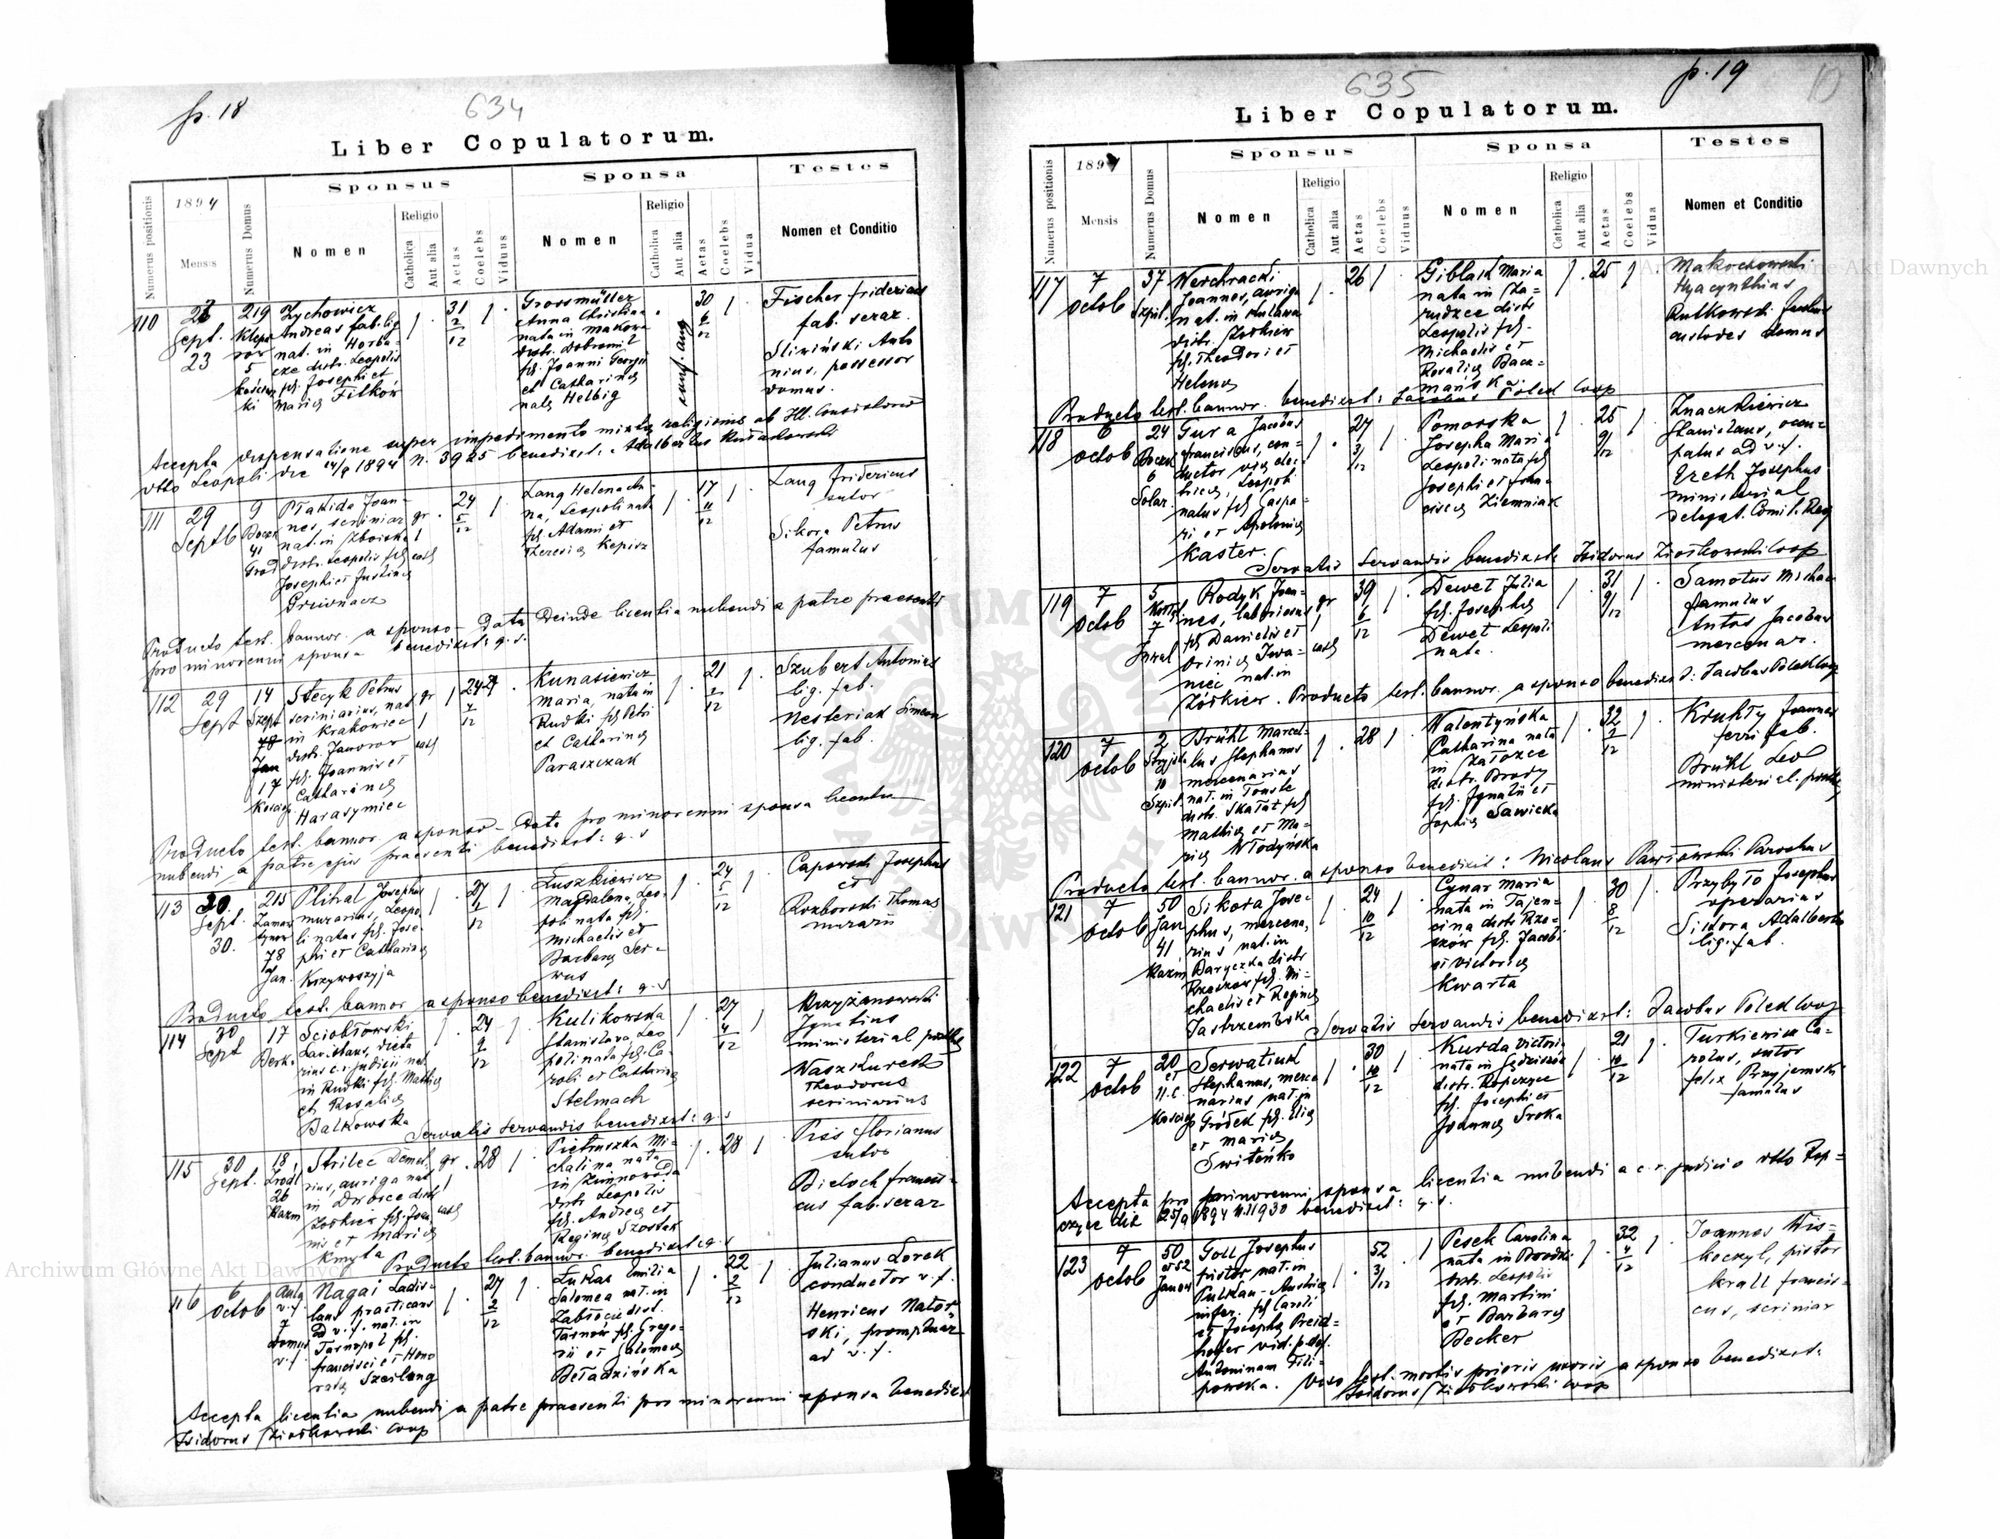 p. 18
634
Liber Copulatorum.
Numerus positionis
1894
Mensis
Numerus Domus
Sponsus
Nomen
Religio
Catholica
Aut alia
Aetas
Coelebs
Viduus
Sponsa
Nomen
Religio
Catholica
Aut alia
Aetas
Coelebs
Vidua
Testes
Nomen et Conditio
110
Sept.
23
219
5
Zychowicz
Andreas fab. lig
nat. in Horba-
cze distr. Leopolis
fil. Josephi et
Mariae Fitkow
31
2
12
Grossmüller
Anna Christina
nata in Makowa
distr. Dobromil
fil. Joanni Georgii
et Catharinae
natae Helbig
conf. aug
30
6
12
Fischer Fridericus
fab. serar.
Sliwiński Anto
nius, possessor
domus.
Accepta dispensatione super impedimento mixtae religionis ab Ill. Consistorio
dtto Leopoli die 14/9 1894 N. 3925 benedixit.
111
29
Septb
9
41
Grod
Joan-
nes, scriniar
nat. in Zboiska
distr. Leopolis fil
Josephi et Justinae
gr
cath
24
5
12
Lang Helena An-
na, Leopoli nata
fil. Adami et
Theresiae Kepisz
17
11
12
Lang Fridericus
sutor
Sikora Petrus
famulus
Producto test. bannor. a sponso - Data Deinde licentia nubendi a patre praesenti
pro minorenni sponsa benedixit: q. s.
112
29
Sept
14
Szept
78
Jan
17
Stecyk Petrus
scriniarius, nat
in Krakowiec
distr. Jaworow
fil. Joannis et
Catharinae
Harasymiec
gr
cath
24
12
Kunasiewicz
Maria, nata in
Rudki fil. Petri
et Catharinae
Paraszczak
21
2
12
Szubert Antonius
lig. fab.
Nesteriak Simeon
lig. fab.
Producto test. bannor. a sponso - Data pro minorenni sponsa licentia
nubendi a patre ejus praesenti benedixit: q. s
113
30.
Sept.
30.
215
78
Jan.
Plihal Josephus
murarius, Leopo
li natus fil. Jose
phi et Catharinae
Krzywoszyja
27
1
12
Łuszkiewicz
Magdalena, Leo-
poli nata fil.
Michaelis et
Barbarae Ser-
wus
24
5
12
Josephus
et
Rozborski Thomas
murarii
Producto test. bannor a sponso benedixit: q. s
114
30
Sept
17
Berk.
Sciobłowski
Ladislaus,
rius c. r. judicii nat
in Rudki fil. Mathiae
et Rosaliae
Bałkowska
24
9
12
Kulikowska
Stanislava Leo
poli nata fil. Ca-
roli et Catharinae
Stelmach
27
4
12
Krzyżanowski
Ignatius
Theodorus
scriniarius
Servatis servandis benedixit: q. s
115
30
Sept.
18
26
Kazm
Strilec Demet-
rius, auriga nat
in Dworce distr
Zołkiew fil. Joan
nis et Mariae
Kmyta
gr
cath
28
Pietruszka Mi-
chalina nata
in Zimnowoda
distr Leopolis
fil. Andreae et
Reginae Szostak
28
Pess Florianus
sutor
Bieloch Francis-
cus fab. serar
Producto test. bannor. benedixit: q. s
116
6
octob
Aula
v. f.
7
Domus
v. f.
Nagai Ladis-
laus practicans
ad v. f. nat. in
Tarnopol fil.
Francisci et Hono
ratae Szeilang
27
2
12
Łukas Emilia
Salomea nat. in
Zabłocie dist.
Tarnów fil. Grego-
rii et Salomeae
Bełdzińska
22
2
12
Julianus Lorek
conductor v. f.
Henricus Nator
ski,
ad v. f.
Accepta licentia nubendi a patre praesenti pro minorenni sponsa benedixit
Isidorus Ziołkowski coop
p. 19
635
10
Liber Copulatorum.
Numerus positionis
1894
Mensis
Numerus Domus
Sponsus
Nomen
Religio
Catholica
Aut alia
Aetas
Coelebs
Viduus
Sponsa
Nomen
Religio
Catholica
Aut alia
Aetas
Coelebs
Vidua
Testes
Nomen et Conditio
117
7
octob
37
Szpit.
Werchracki
Joannes, auriga
nat. in Kulawa
distr. Zołkiew
fil. Theodori et
Helenae
26
Giblak Maria
nata in Za-
rudzce distr
Leopolis fil.
Michaelis et
Rosaliae Bacz-
mańska.
25
Makoczowski
Hyacynthus
Rutkowski
custodes domus
Producto test. bannor. benedixit: Jacobus Poledl coop
118
6
octob
24
6
Solar.
Gura Jacobus
Franciscus, con-
ductor viae elec-
tricae, Leopoli
natus fil. Caspa-
ri et Apoloniae
Kaster.
27
3
12
Pomorska
Josepha Maria
Leopoli nata fil
Josephi et Fran-
ciscae Ziemniak
25
9
12
Znaczkiewicz
Stanislaus, occu-
patus ad v. f.
Ereth Josephus
ministerial
Servatis servandis benedixit Isidorus Ziołkowski coop
119
7
octob
5
7
Rodyk Joan-
nes, laboriosus
fil. Danielis et
Irinae Iwa-
niec nat. in
Zółkiew.
gr
cath
39
6
12
Dewet Julia
fil. Josephae
Dewet Leopoli
nata.
31
9
12
Samotus Michael
famulus
Antos Jacobus
mercenar.
Producto test. bannor. a sponso benedixit: Jacobus Poledl coop
120
7
octob
2
10
Szpit.
Brühl Marcel-
lus Stephanus
mercenarius
nat. in Touste
distr. Skałat fil
Mathiae et Ma-
riae Włodyńska
28
Walentyńska
Catharina nata
in Załozce
distr. Brody
fil. Ignatii et
Sophiae Sawicka
32
12
Krukły Joannes
ferri fab.
Brühl Leo
Producto test. bannor. a sponso benedixit: Nicolaus Pawłowski Parochus
121
7
octob
50
Jan
41
Kazm
Sikora Jose-
phus, mercena,
rius, nat. in
Baryczka distr
Rzeszów fil. Mi-
chaelis et Reginae
Jastrzembska
24
10
12
Cynar Maria
nata in Tajen-
cina distr. Rze-
szów fil. Jacobi
et Victoriae
Kwarta
30
8
12
Przybyło Josephus
operarius
Sikora Adalbertus
lig. fab.
Servatis servandis benedixit: Jacobus Poledl coop
122
7
octob
20
et
11.c.
Serwatiuk
Stephanus, merce
narius nat. in
Gródek fil. Eliae
et Mariae
Świteńko
30
10
12
Kurda Victori-
nata in Sędziszów
distr. Ropczyce
fil. Josephi et
Joannae Sroka
21
10
12
Turkiewicz Ca-
rolus, sutor
Felix Przyjemski
famulus
Accepta pro minorenni sponsa licentia nubendi a c. r. judicio dtto Rop-
czyce die 25/9 1894 N. 11930 benedixit: q. s.
123
7
octob
50
et 52
Janow
Goll Josephus
pistor nat. in
Pulkau - Austria
infer. fil. Caroli
et Josephae Breid-
hofer vid. p. def.
Antoninam Fili-
powska.
52
3
12
Pesek Carolina
nata in Brodki
distr. Leopolis
fil. Martini
et Barbarae
Becker
32
4
12
Joannes Wis-
koczyl, pistor
Krall Francis-
cus, scriniar
Viso test. mortis prioris uxoris a sponso benedixit:
Isidorus Ziołkowski coop
Archiwum Główne Akt Dawnych
Archiwum Główne Akt Dawnych